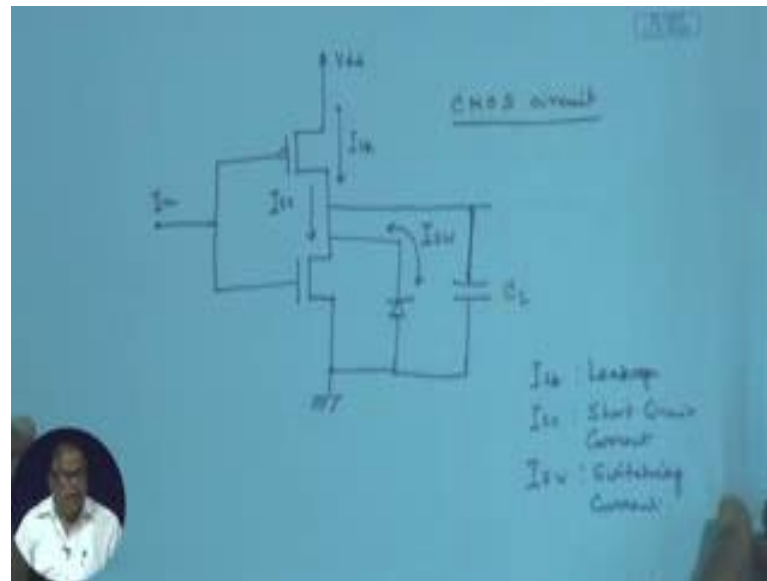 Vdd
CMOS circuit
Ilk
In
Isc
Isw
CL
Ilk : Leakage
Isc : Short Circuit
Current
Isw : Switching
Current